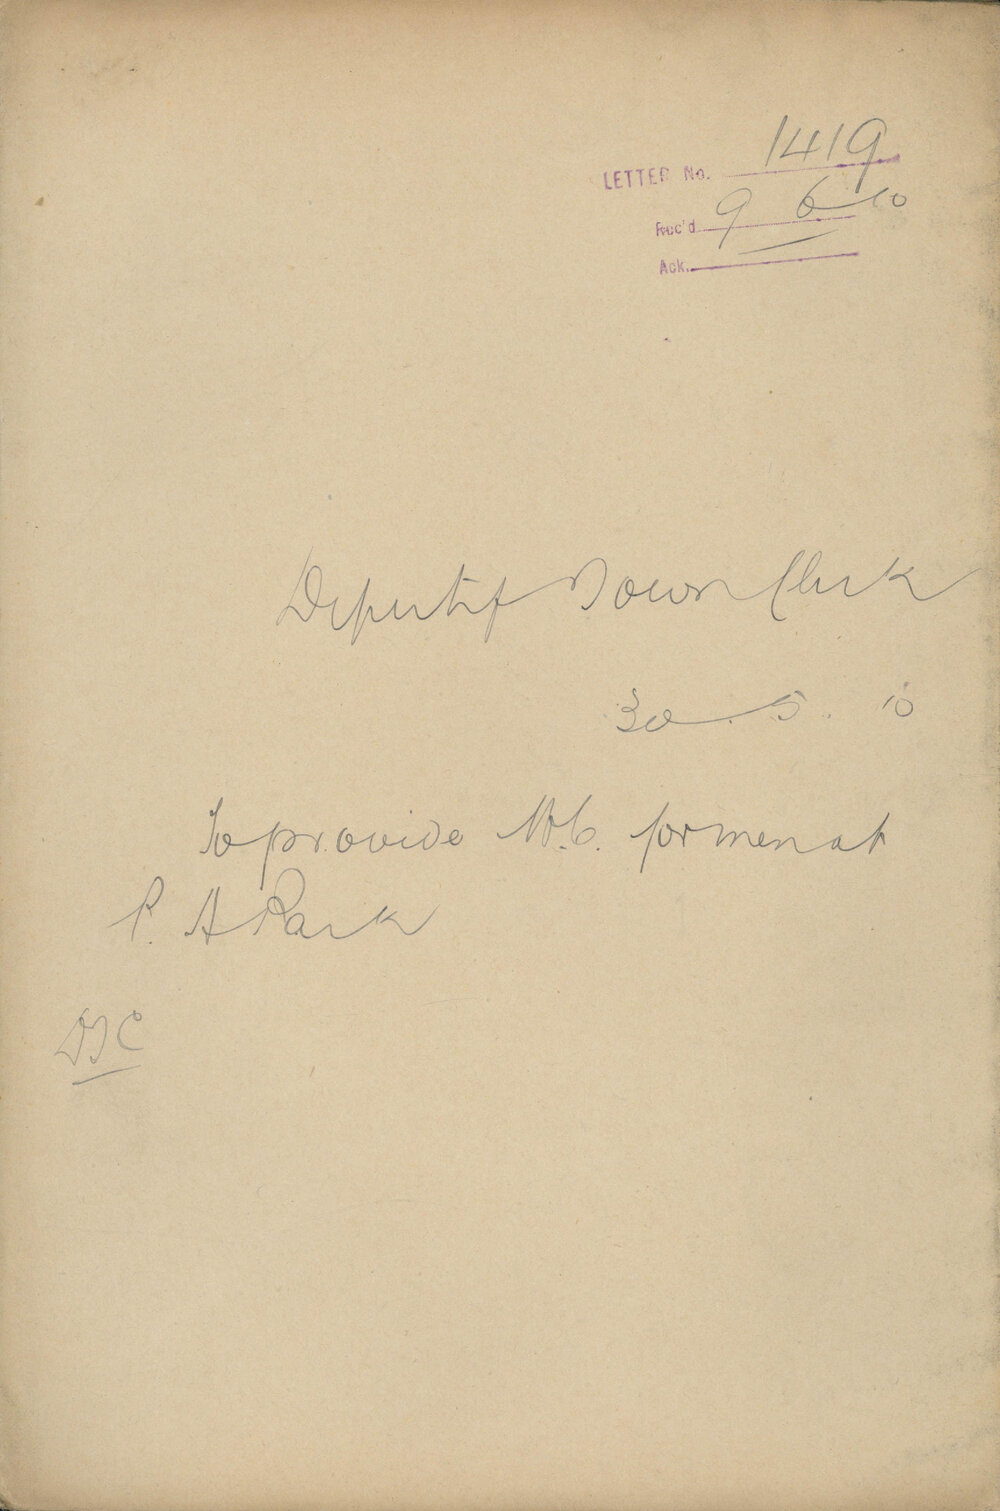 LETTER No. 1419
Rec'd 9 6 10
Ack.
Deputy Town Clerk
30. 5. 10
To provide W.C. for men at
P. A Park
DTC